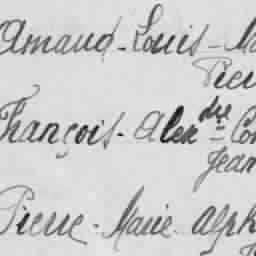 Amand-Louis-Ma
Pier
François-Alexdre-Con
Jean
Pierre-Marie-Alph